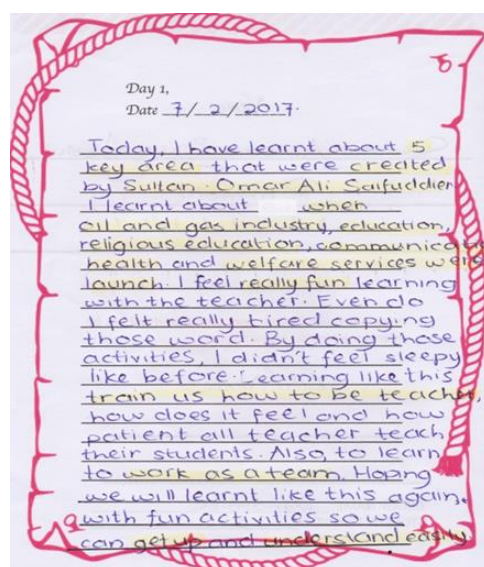 Day 1,
Date 7/2/2017.
Today, I have learnt about 5
key area that were created
by Sultan. Omar Ali Saifuddien
I learnt about when
oil and gas industry, education,
religious education, communicatio
health and welfare services were
launch. I feel really fun learning
with the teacher. Even do
I felt really tired copying
those word. By doing those
activities, I didn't feel sleepy
like before. Learning like this
train us how to be teacher,
how does it feel and how
patient all teacher teach
their students. Also, to learn
to work as a team. Hoping
we will learnt like this again,
with fun activities so we
can get up and understand easily.